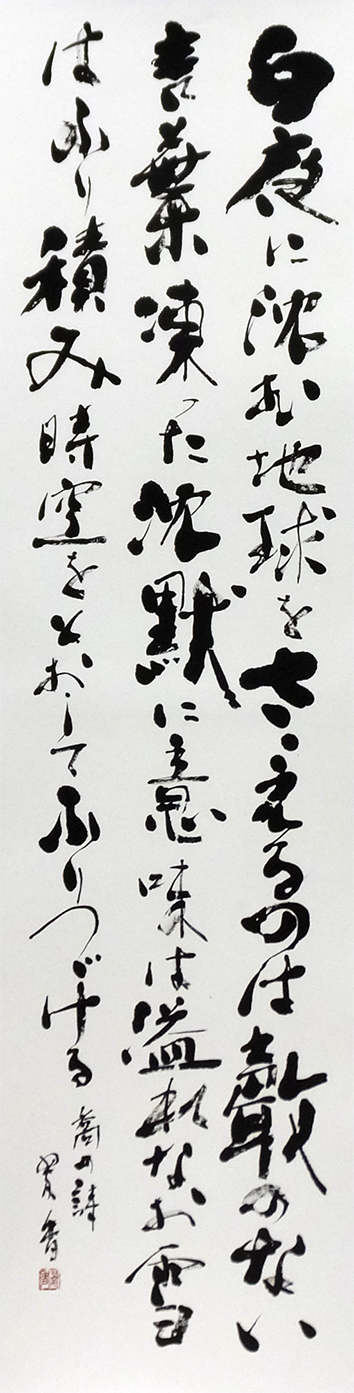 白夜に沈む地球をささえるのは聲のない
言葉凍った沈默に意味は溢れなお雪
はふり積み時空をとおしてふりつづける
喬の詩